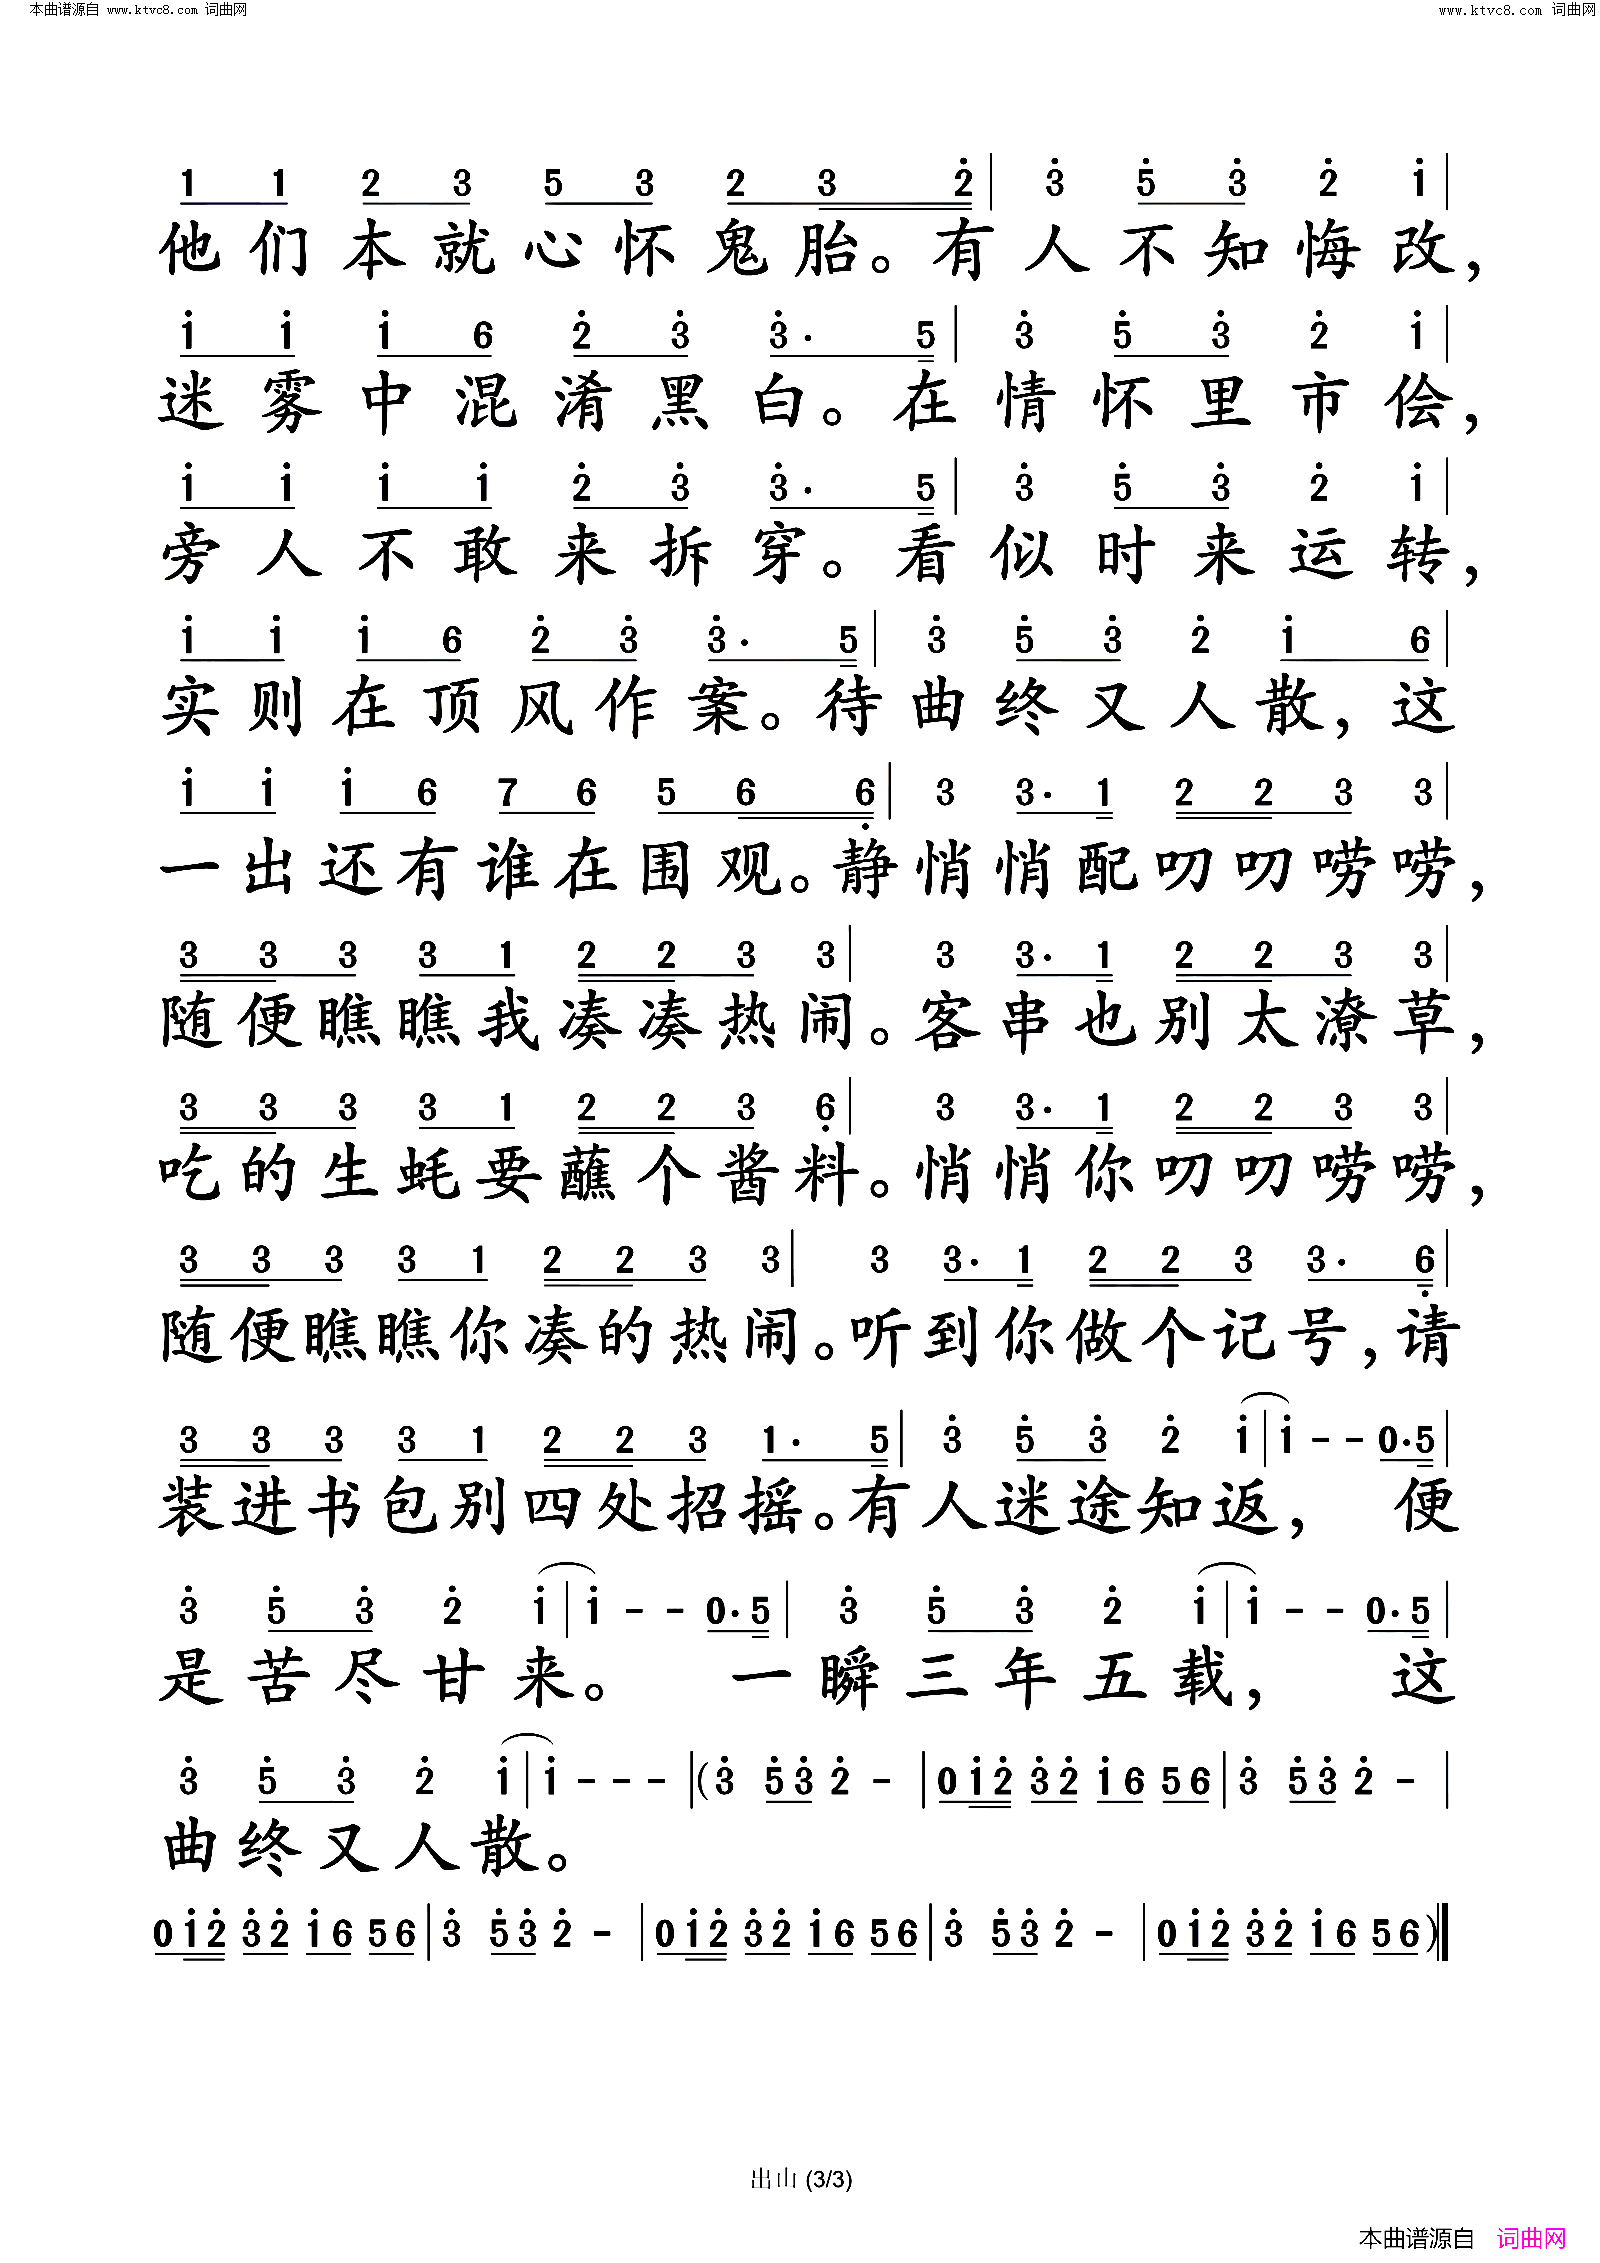 本曲谱源自 www.ktvc8.com 词曲网
www.ktvc8.com 词曲网
1 1 2 3 5 3 2 3 2̇ | 3̇ 5̇ 3̇ 2̇ 1̇ |
他们本就心怀鬼胎。有人不知悔改，
1̇ 1̇ 1̇ 6 2̇ 3̇ 3̇· 5̇ | 3̇ 5̇ 3̇ 2̇ 1̇ |
迷雾中混淆黑白。在情怀里市侩，
1̇ 1̇ 1̇ 1̇ 2̇ 3̇ 3̇· 5̇ | 3̇ 5̇ 3̇ 2̇ 1̇ |
旁人不敢来拆穿。看似时来运转，
1̇ 1̇ 1̇ 6 2̇ 3̇ 3̇· 5̇ | 3̇ 5̇ 3̇ 2̇ 1̇ 6 |
实则在顶风作案。待曲终又人散，这
1̇ 1̇ 1̇ 6 7 6 5 6 6̣ | 3 3· 1 2 2 3 3 |
一出还有谁在围观。静悄悄配叨叨唠唠，
3 3 3 3 1 2 2 3 3 | 3 3· 1 2 2 3 3 |
随便瞧瞧我凑凑热闹。客串也别太潦草，
3 3 3 3 1 2 2 3 6̣ | 3 3· 1 2 2 3 3 |
吃的生蚝要蘸个酱料。悄悄你叨叨唠唠，
3 3 3 3 1 2 2 3 3 | 3 3· 1 2 2 3 3· 6̣ |
随便瞧瞧你凑的热闹。听到你做个记号，请
3 3 3 3 1 2 2 3 1· 5̇ | 3̇ 5̇ 3̇ 2̇ 1̇ | 1̇ - - 0· 5̇ |
装进书包别四处招摇。有人迷途知返， 便
3̇ 5̇ 3̇ 2̇ 1̇ | 1̇ - - 0· 5̇ | 3̇ 5̇ 3̇ 2̇ 1̇ | 1̇ - - 0· 5̇ |
是苦尽甘来。 一瞬三年五载， 这
3̇ 5̇ 3̇ 2̇ 1̇ | 1̇ - - - | (3̇ 5̇3̇ 2̇ - | 0 1̇2̇ 3̇2̇ 1̇6 56 | 3̇ 5̇3̇ 2̇ - |
曲终又人散。
0 1̇2̇ 3̇2̇ 1̇6 56 | 3̇ 5̇3̇ 2̇ - | 0 1̇2̇ 3̇2̇ 1̇6 56 | 3̇ 5̇3̇ 2̇ - | 0 1̇2̇ 3̇2̇ 1̇6 56 )‖
出山 (3/3)
本曲谱源自 词曲网